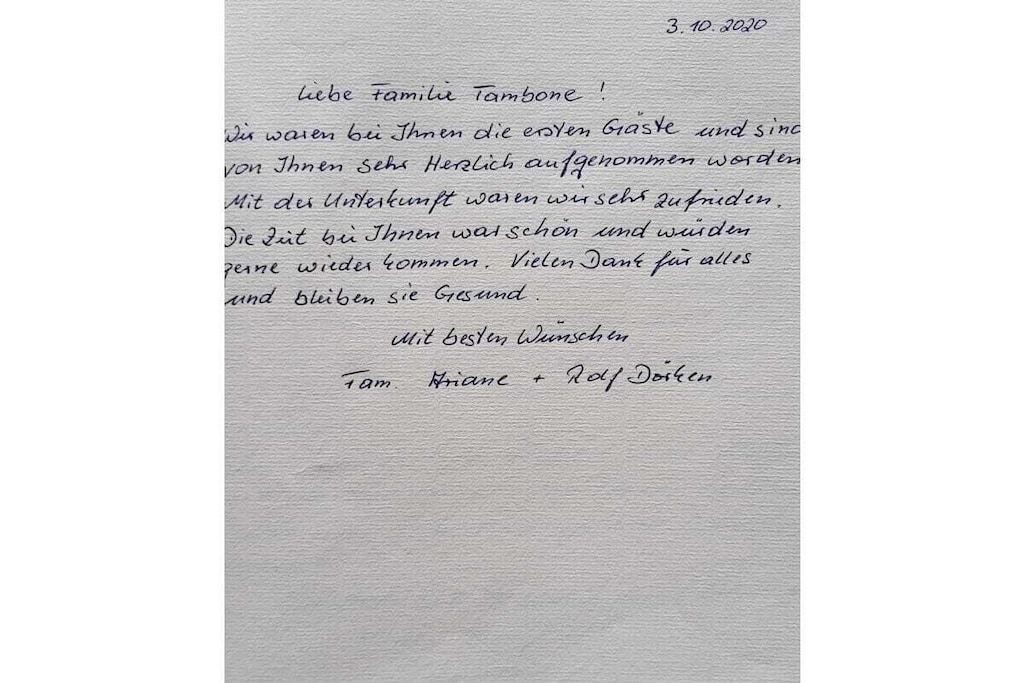 3.10.2020
Liebe Familie Tambone!
Wir waren bei Ihnen die ersten Gäste und sind
von Ihnen sehr Herzlich aufgenommen worden
Mit der Unterkunft waren wir sehr zufrieden.
Die Zeit bei Ihnen war schön und würden
gerne wieder kommen. Vielen Dank für alles
und bleiben sie Gesund.
Mit besten Wünschen
Fam. Ariane + Rolf Dörken